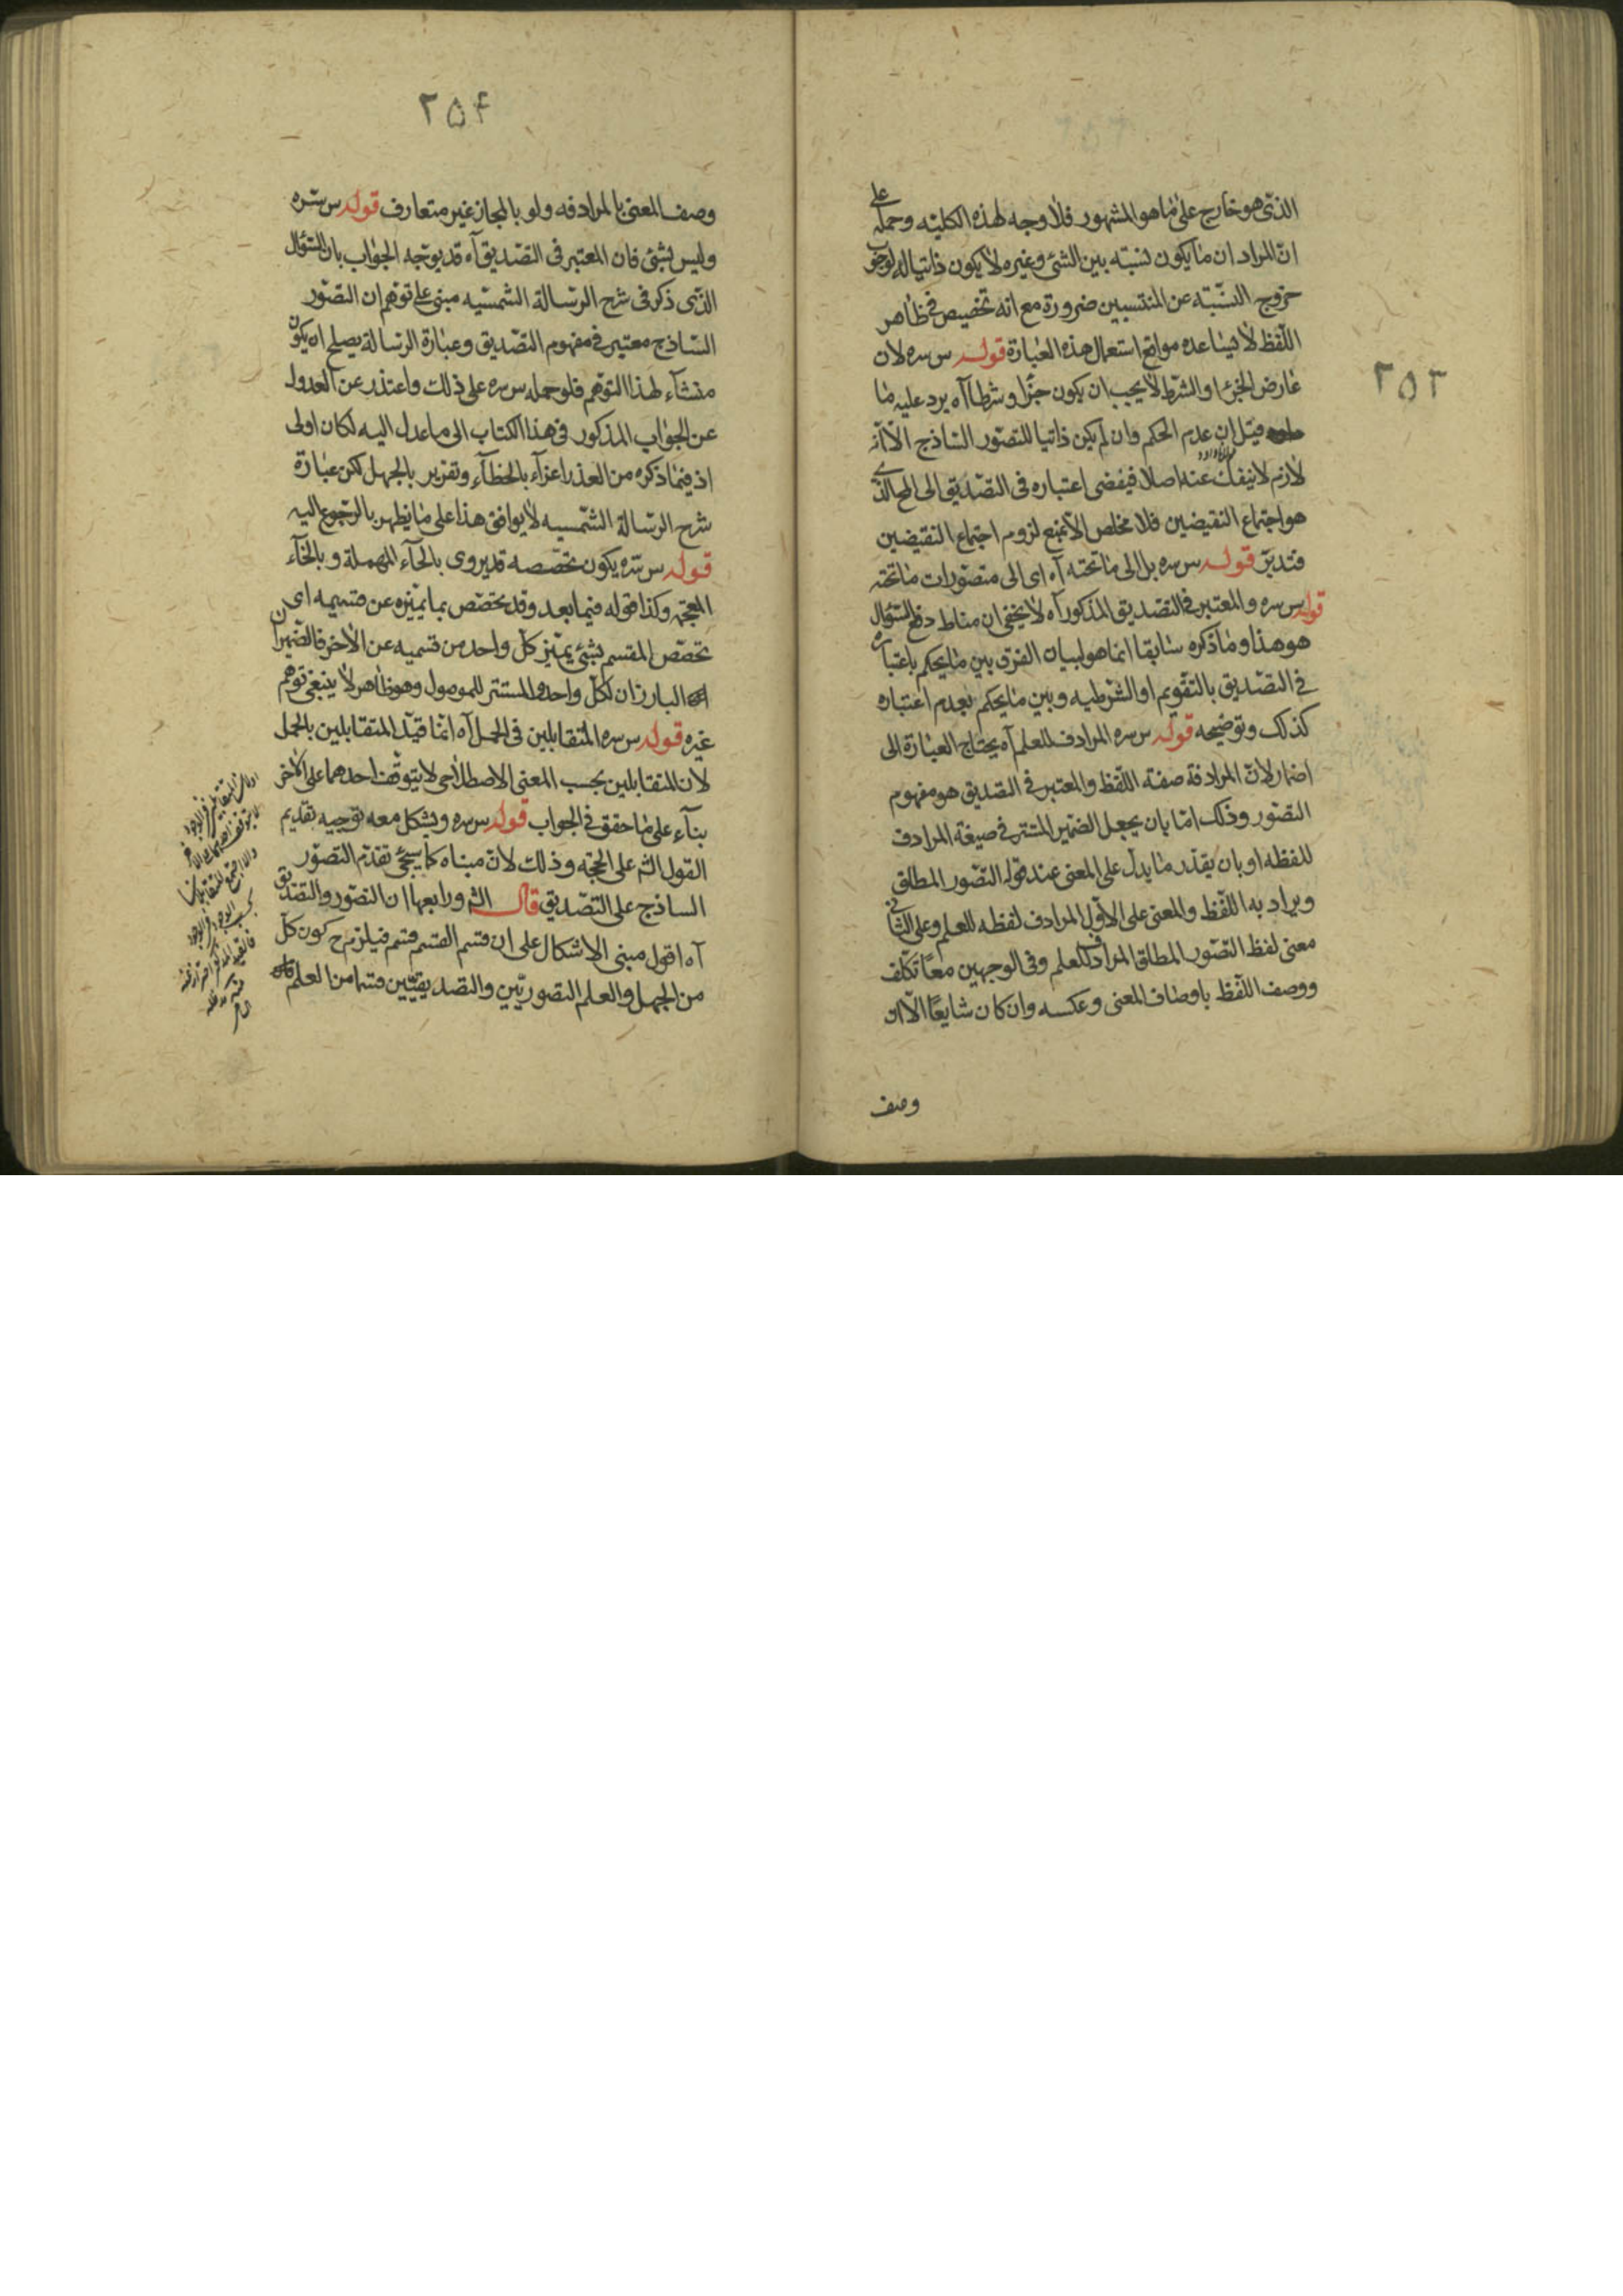 ٢٥٣
الذى هو خارج على ما هو المشهور فلا وجه لهذه الكليته وحمله على
ان المراد ان ما يكون نسبته بين الشئ وغيره لا يكون ذاتيا له لوجوب
خروج النسبته عن المنتسبين ضرورة مع انه تخصيص فى ظاهر
اللفظ لا يساعده مواقع استعمال هذه العبارة قوله س سره لان
عارض الجزء او الشرط لا يجب ان يكون جزأ وشرطا آه يرد عليه ما
قيل ان عدم الحكم وان لم يكن ذاتيا للتصور الساذج الا انه
لازم لا ينفك عنه اصلا فيفضى اعتباره فى التصديق الى المح الذى
هو اجتماع النقيضين فلا مخلص الا بمنع لزوم اجتماع النقيضين
فتدبر قوله س سره بل الى ما تحته آه اى الى متصورات ما تحته
قوله س سره والمعتبر فى التصديق المذكور آه لا يخفى ان مناط دفع السؤال
هو هذا وما ذكره سابقا انما هو لبيان الفرق بين ما يحكم باعتباره
فى التصديق بالتقويم او الشرطيه وبين ما يحكم بعدم اعتباره
كذلك وتوضيحه قوله س سره المرادف للعلم آه يحتاج العبارة الى
اضمار لان المرادفة صفته اللفظ والمعتبر فى التصديق هو مفهوم
التصور وذلك اما بان يجعل الضمير المستتر فى صيغة المرادف
للفظه او بان يقدر ما يدل على المعنى عند قوله التصور المطلق
ويراد به اللفظ والمعنى على الاول المرادف لفظه للعلم وعلى الثانى
معنى لفظ التصور المطلق المرادف للعلم وفى الوجهين معا تكلف
ووصف اللفظ باوصاف المعنى وعكسه وان كان شايعا الا ان
وصف
٢٥۴
وصف المعنى بالمرادفه ولو بالمجاز غير متعارف قوله س سره
وليس بشئ فان المعتبر فى التصديق آه قد يوجه الجواب بان السؤال
الذى ذكر فى شرح الرسالة الشمسيه مبنى على توهم ان التصور
الساذج معتبر فى مفهوم التصديق وعبارة الرسالة يصلح ان يكون
منشاء لهذا التوهم فلو حمله س سره على ذلك واعتذر عن العدول
عن الجواب المذكور فى هذا الكتاب الى ما عدل اليه لكان اولى
اذ فيما ذكره من العذر اعزآء بالخطآء وتقرير بالجهل لكن عبارة
شرح الرسالة الشمسيه لا يوافق هذا على ما يظهر بالرجوع اليه
قوله س سره يكون تخصصه قد يروى بالحآء المهملة و بالخآء
المعجمه وكذا قوله فيما بعد وقد تخصص بما يميزه عن قسيمه اى
تخصص المقسم بشئ يميز كل واحد من قسميه عن الاخر فالضميران
البارزان لكل واحد والمستتر للموصول وهو ظاهر لا ينبغى توهم
غيره قوله س سره المتقابلين فى الحمل آه انما قيد المتقابلين بالحمل
لان المتقابلين بحسب المعنى الاصطلاحى لا يتوقف احدهما على الاخر
بنآء على ما حقق فى الجواب قوله س سره ويشكل معه توجيه تقديم
القول الش على الحجه وذلك لان مبناه كما سيجئ تقدم التصور
الساذج على التصديق قال الش ورابعها ان التصور والتصديق
آه اقول مبنى الاشكال على ان قسم القسم قسم فيلزم ح كون كل
من الجهل والعلم التصوريين والتصديقيين قسما من العلم